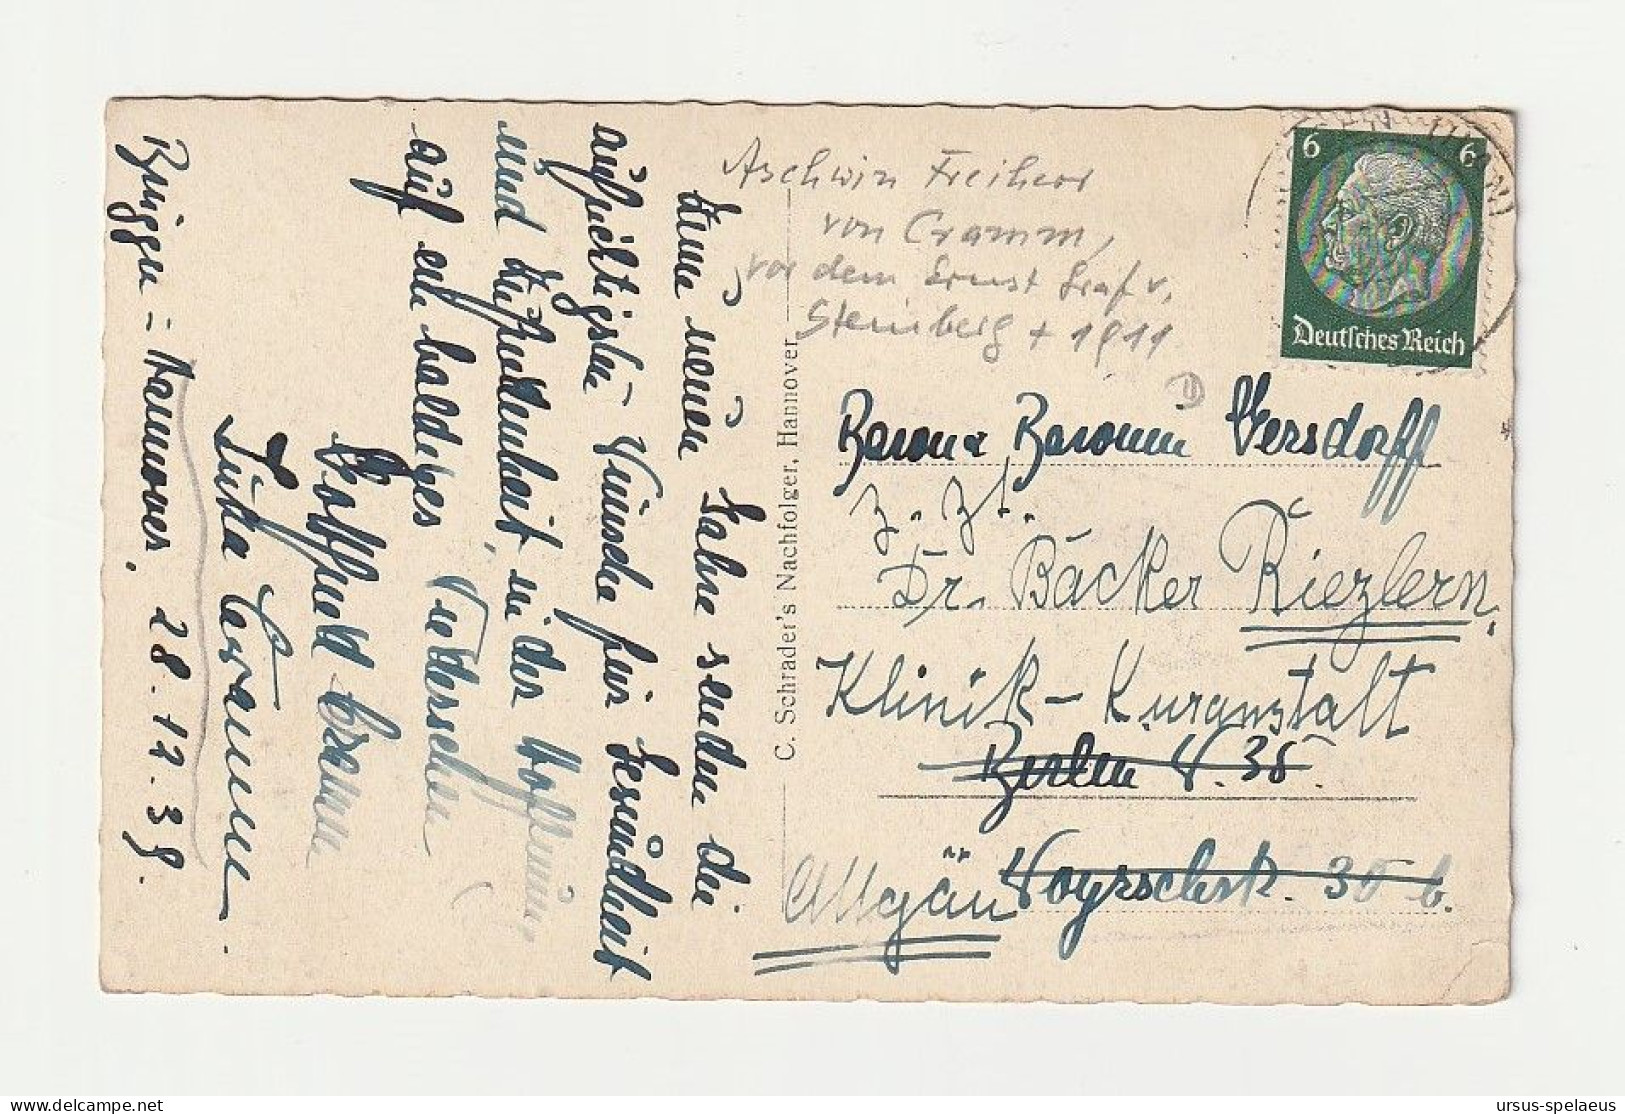 Zum neuen Jahre senden die
aufrichtigsten Wünsche für Gesundheit
und Zufriedenheit, in der Hoffnung
auf ein baldiges Wiedersehen
Gottfried Cramm
Jutta Cramm.
Brüggen - Hannover, 28.12.39.
C. Schrader's Nachfolger, Hannover
Aschwin Freiherr
von Cramm,
vor dem Ernst Graf v.
Steinberg + 1911
6 6
Deutsches Reich
Baron & Baronin Gersdorff
z. Zt.
Dr. Bäcker Riezlern.
Klinik - Kuranstalt
Berlin W. 35
Woyrschstr. 30 b.
Allgäu
delcampe.net
ursus-spelaeus